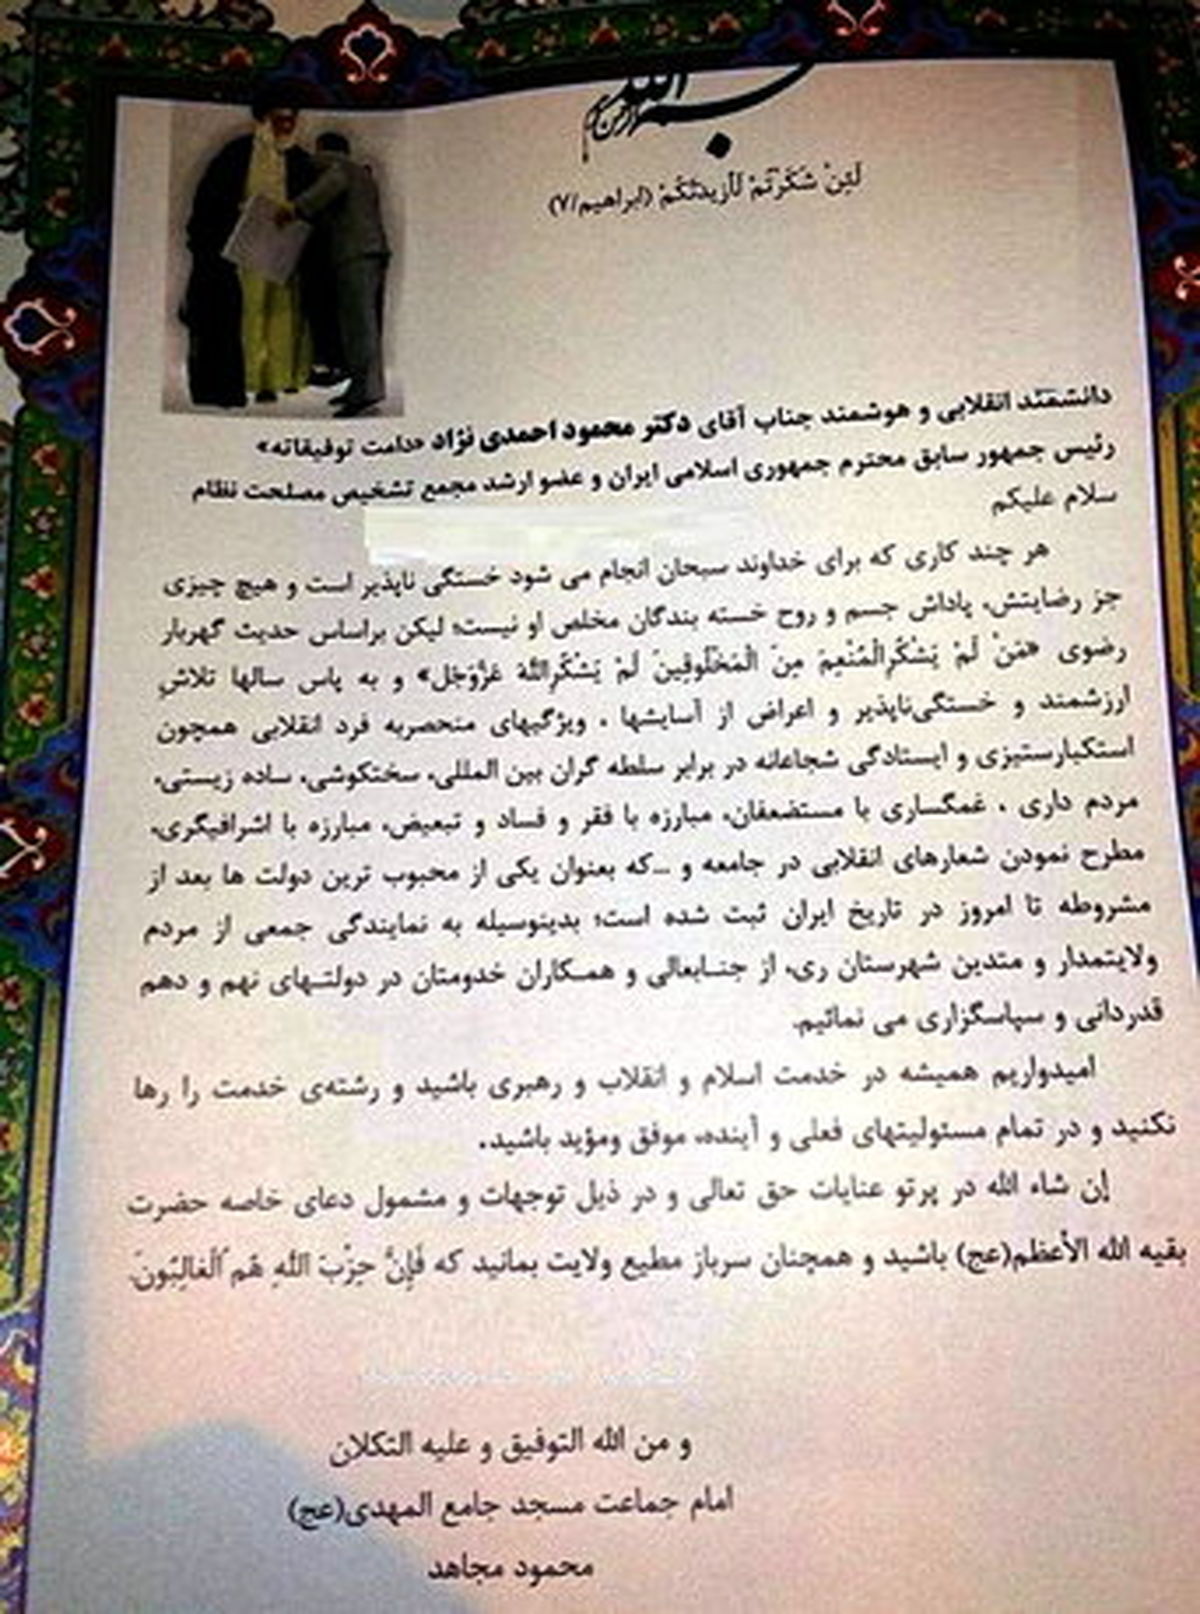 بسم الله الرحمن الرحیم
لَئِنْ شَكَرْتُمْ لَأَزِيدَنَّكُمْ (ابراهیم/۷)
دانشمند انقلابی و هوشمند جناب آقای دکتر محمود احمدی نژاد «دامت توفیقاته»
رئیس جمهور سابق محترم جمهوری اسلامی ایران و عضو ارشد مجمع تشخیص مصلحت نظام
سلام علیکم
هر چند کاری که برای خداوند سبحان انجام می شود خستگی ناپذیر است و هیچ چیزی
جز رضایتش، پاداش جسم و روح خسته بندگان مخلص او نیست؛ لیکن براساس حدیث گهربار
رضوی «مَنْ لَمْ يَشْكُرِ الْمُنْعِمَ مِنَ الْمَخْلُوقِينَ لَمْ يَشْكُرِ اللَّهَ عَزَّوَجَل» و به پاس سالها تلاشِ
ارزشمند و خستگی‌ناپذیر و اعراض از آسایشها ، ویژگیهای منحصربه فرد انقلابی همچون
استکبارستیزی و ایستادگی شجاعانه در برابر سلطه گران بین المللی، سختکوشی، ساده زیستی،
مردم داری ، غمگساری با مستضعفان، مبارزه با فقر و فساد و تبعیض، مبارزه با اشرافیگری،
مطرح نمودن شعارهای انقلابی در جامعه و ...که بعنوان یکی از محبوب ترین دولت ها بعد از
مشروطه تا امروز در تاریخ ایران ثبت شده است؛ بدینوسیله به نمایندگی جمعی از مردم
ولایتمدار و متدین شهرستان ری، از جنـابعالی و همـکاران خدومتان در دولتـهای نهم و دهم
قدردانی و سپاسگزاری می نمائیم.
امیدواریم همیشه در خدمت اسلام و انقلاب و رهبری باشید و رشته‌ی خدمت را رها
نکنید و در تمام مسئولیتهای فعلی و آینده، موفق ومؤید باشید.
إن شاء الله در پرتو عنایات حق تعالی و در ذیل توجهات و مشمول دعای خاصه حضرت
بقیه الله الأعظم(عج) باشید و همچنان سرباز مطیع ولایت بمانید که فَإِنَّ حِزْبَ اللَّهِ هُمُ الْغَالِبُونَ.
و من الله التوفیق و علیه التکلان
امام جماعت مسجد جامع المهدی(عج)
محمود مجاهد